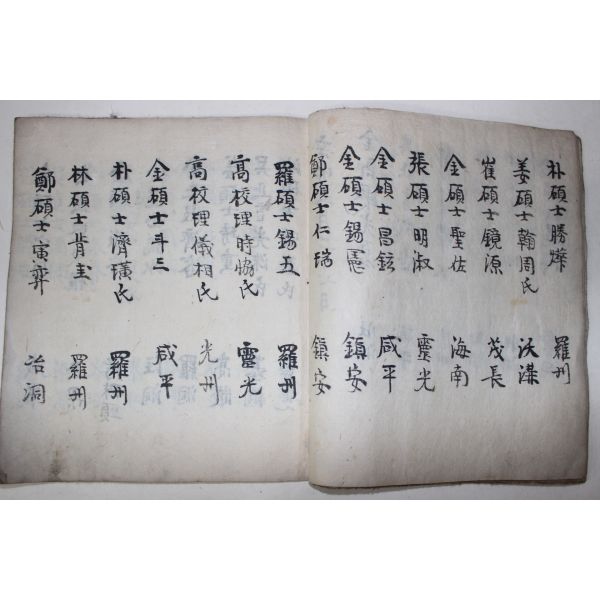 朴碩士勝燁 羅州
姜碩士翰周氏 沃溝
崔碩士鏡源 茂長
金碩士聖佐 海南
張碩士明淑 靈光
金碩士昌鉉 咸平
金碩士錫憲 鎭安
鄭碩士仁瑞 鎭安
羅碩士錫五氏 羅州
高校理時協氏 靈光
高校理儀相氏 光州
金碩士斗三 咸平
朴碩士濟璜氏 羅州
林碩士肯圭 羅州
鄭碩士寅弈 冶洞